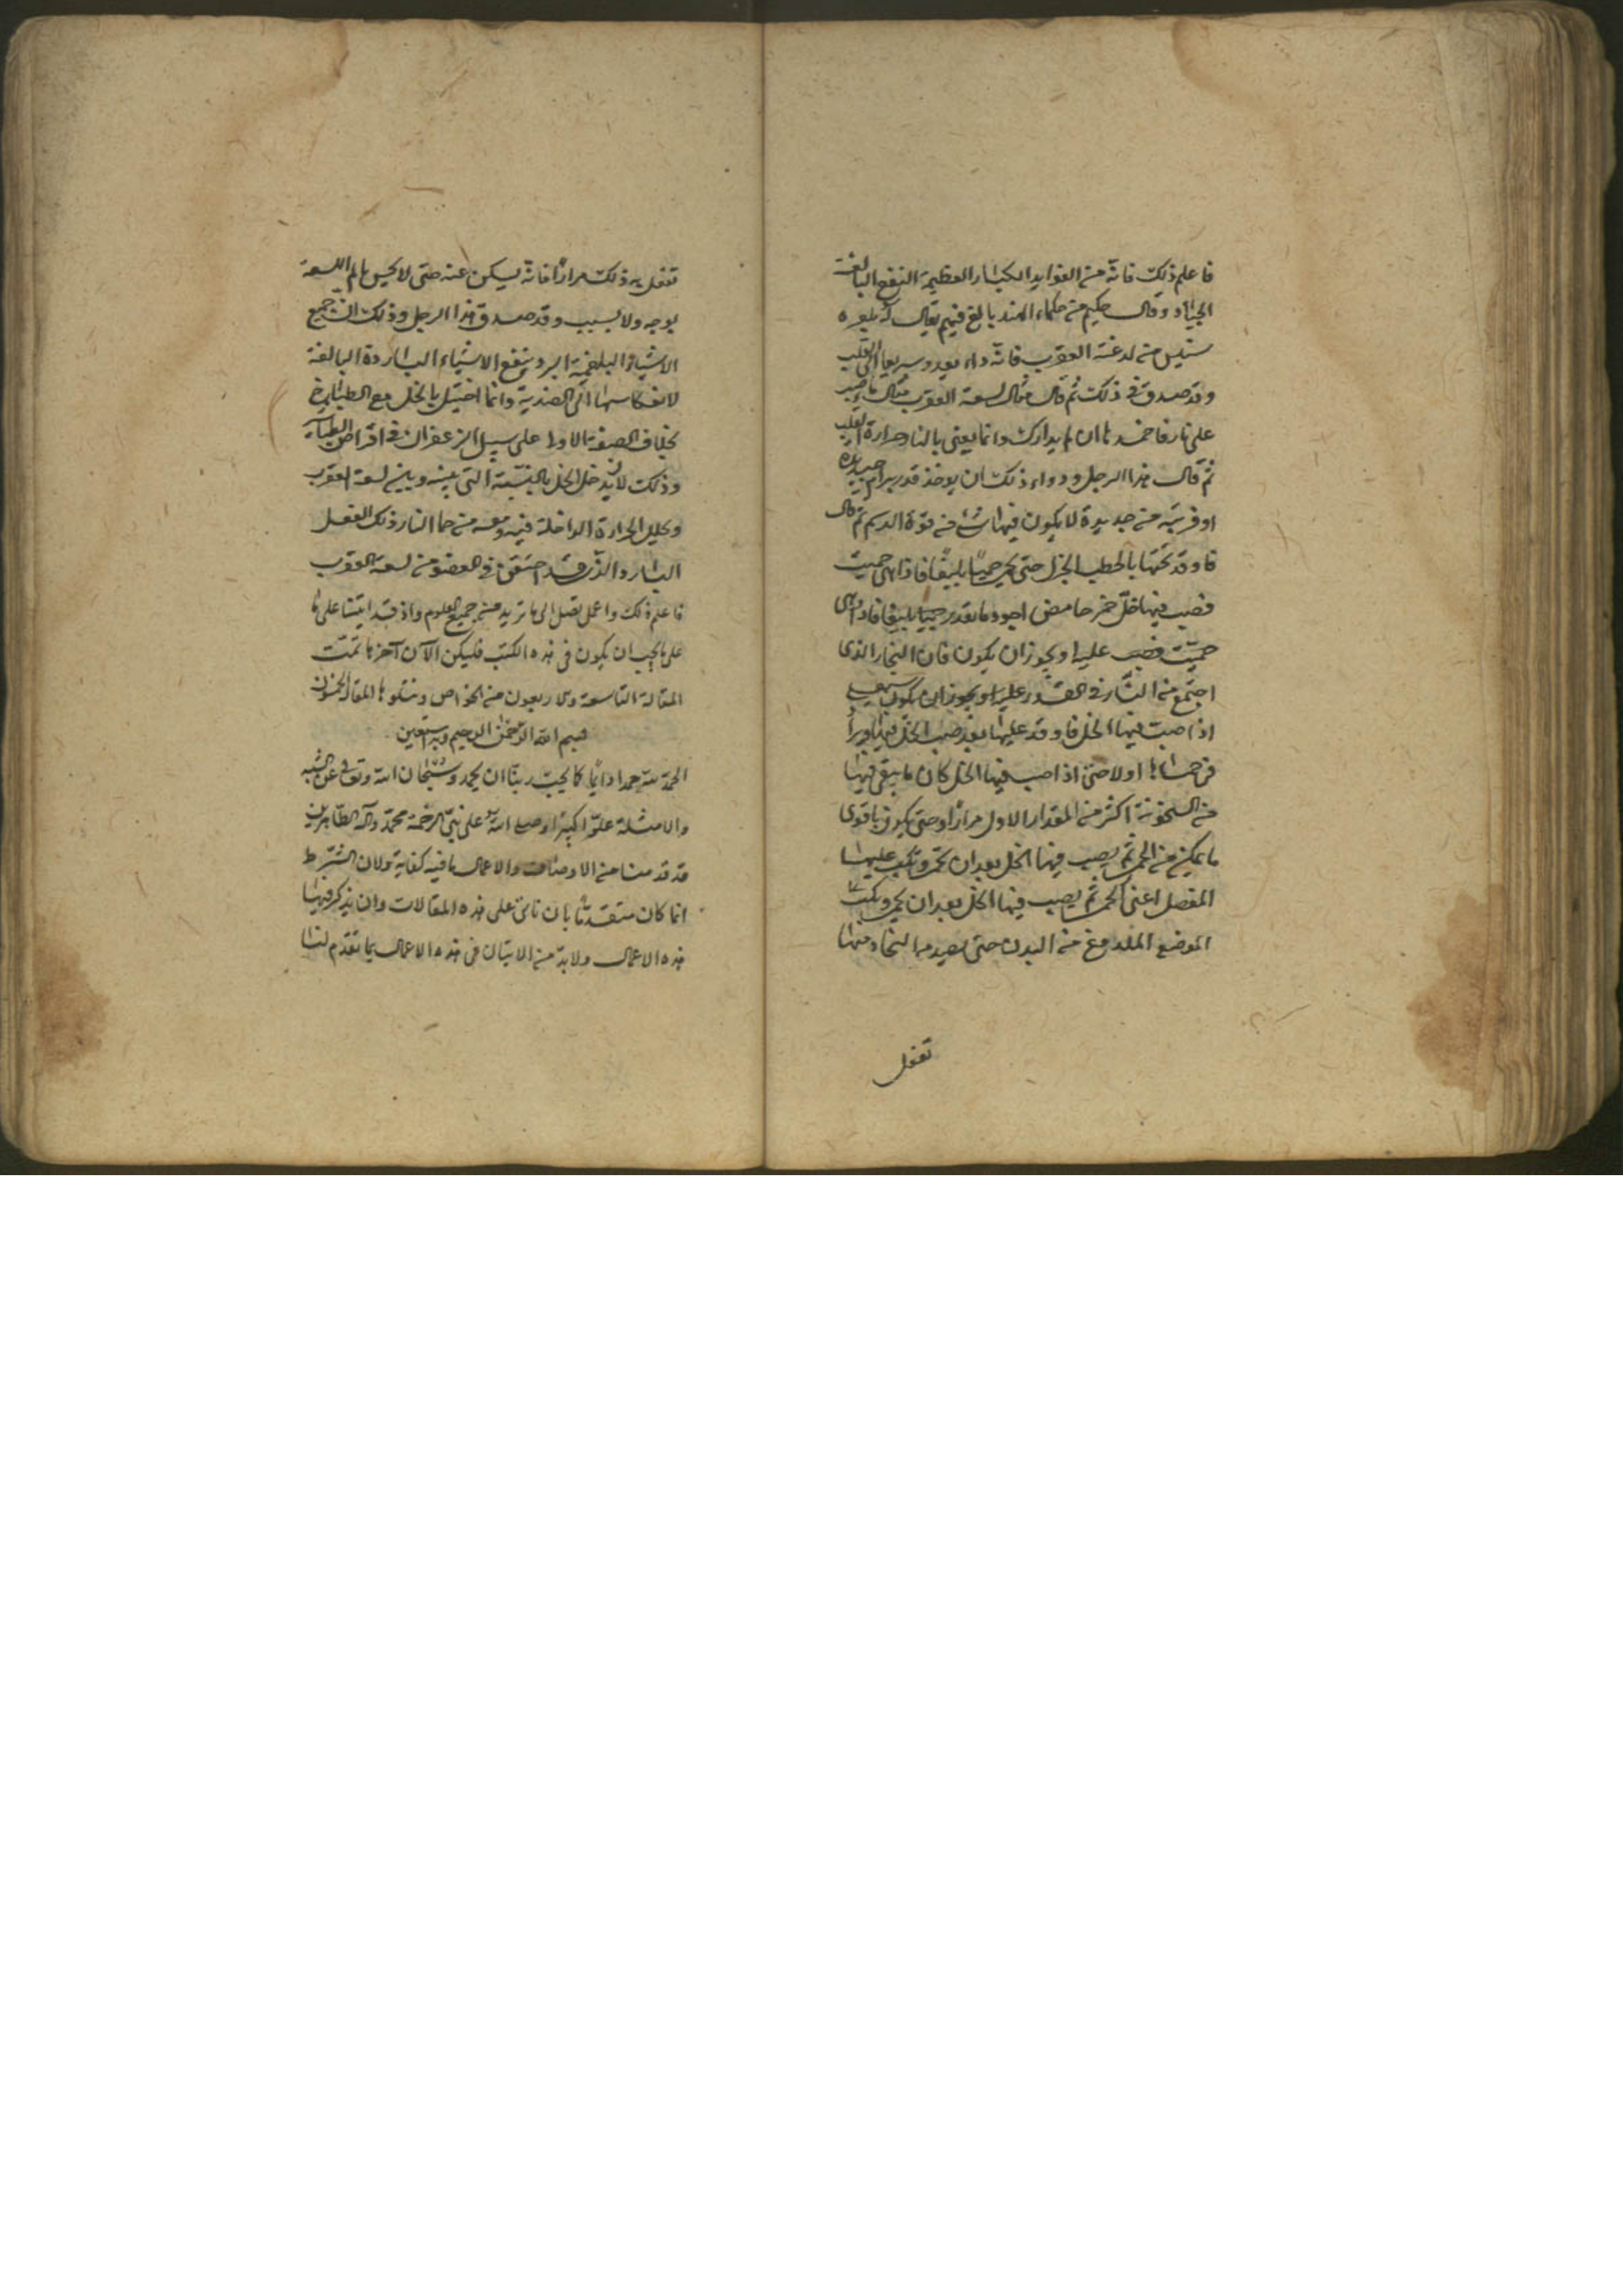 فاعلم ذلك فانه من الفوايد الكبار العظيمة النفع البالغة
الجياد وقال حكيم من حكماء الهند بالغ فيهم يقال له
من لدغة العقرب فانه داء يعدو سريعا الى القلب
وقد صدق في ذلك ثم قال مثال لسعة العقرب مثال
على نار فاخمدها ان لم يدارك وانما يعنى بالنار حرارة القلب
ثم قال هذا الرجل ودواء ذلك ان يوخذ قدر برام جديدة
او قريبة من جديدة لا يكون فيها شئ من قوة الدسم ثم قال
فاوقد تحتها بالحطب الجزل حتى تحمى حميا بليغا فاذا هى حميت
فصب فيها خل خمر حامض اجود ما تقدر حميا بليغا فاذا هى
حميت فصب عليه او يجوز ان يكون فان البخار الذى
اجتمع من النار في القدر عليه او يجوز ان يكون
اذا صبت فيها الخل فاوقد عليها بعد صب الخل فيها
من اولا حتى اذا صب فيها الخل كان ما يبقى فيها
من السخونة اكثر من المقدار الاول مرارا وحتى يكون باقوى
ما يمكن من الحمى ثم يصب فيها الخل بعد ان تحمر وتكب عليها
المفصل اعنى الحمى ثم يصب فيها الخل بعد ان يحمى وتكب
الموضع الملدوغ من البدن حتى يصيده البخار منها
تفعل
تفعل به ذلك مرارا فانه يسكن عنه حتى لا يحس بالم اللسعة
بوجه ولا بسبب وقد صدق هذا الرجل وذلك ان جميع
الاشياء البلغمية البرد ينفع الاشياء الباردة البالغة
لانعكاسها الى الضدية وانما احتيل بالخل مع
بخلاف الصفة الاولى على سبيل الزعفران في اقراص
وذلك لان يدخل الخل بالنسبة التى بينه وبين لسعة العقرب
وتحليل الحرارة الداخلة فيه ومعه من حما النار ذلك الفضل
البارد الذى قد احتقن في العضو من لسعة العقرب
فاعلم ذلك واعمل تصل الى ما تريد من جميع العلوم واذ قد اتينا على ما
على ما يجب ان يكون فى هذه الكتب فليكن الآن آخرها تمت
المقالة التاسعة والاربعون من الخواص ونتلوها المقالة الخمسون
بسم الله الرحمن الرحيم وبه نستعين
الحمد لله حمدا دايما كما يحب ربنا ان يحمد وسبحان الله وتعالى عن الشبه
والامثلة علوا كبيرا وصلى الله على نبى الرحمة محمد وآله الطاهرين
قد قدمنا من الاوصاف والاعمال ما فيه كفاية ولان الشرط
انما كان متقدما بان ناتى على هذه المقالات وان نذكر فيها
هذه الاعمال ولا بد من الاتيان فى هذه الاعمال بما تقدم لنا